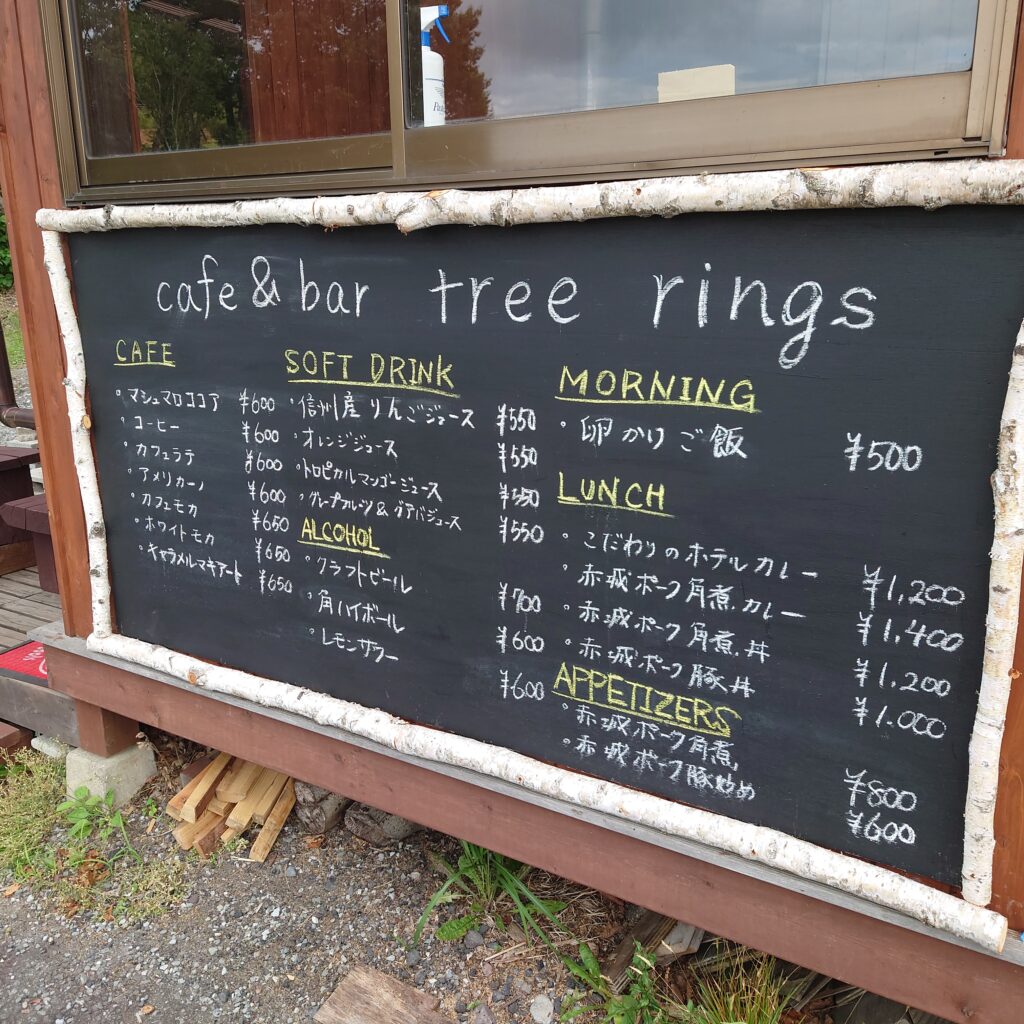 cafe & bar tree rings
CAFE
・マシュマロココア ¥600
・コーヒー ¥600
・カフェラテ ¥600
・アメリカーノ ¥600
・カフェモカ ¥650
・ホワイトモカ ¥650
・キャラメルマキアート ¥650
SOFT DRINK
・信州産りんごジュース ¥550
・オレンジジュース ¥550
・トロピカルマンゴージュース ¥550
・グレープフルーツ&グアバジュース ¥550
ALCOHOL
・クラフトビール ¥700
・角ハイボール ¥600
・レモンサワー ¥600
MORNING
・卵かけご飯 ¥500
LUNCH
・こだわりのホテルカレー ¥1,200
・赤城ポーク角煮カレー ¥1,400
・赤城ポーク角煮丼 ¥1,200
・赤城ポーク豚丼 ¥1,000
APPETIZERS
・赤城ポーク角煮 ¥800
・赤城ポーク豚炒め ¥600